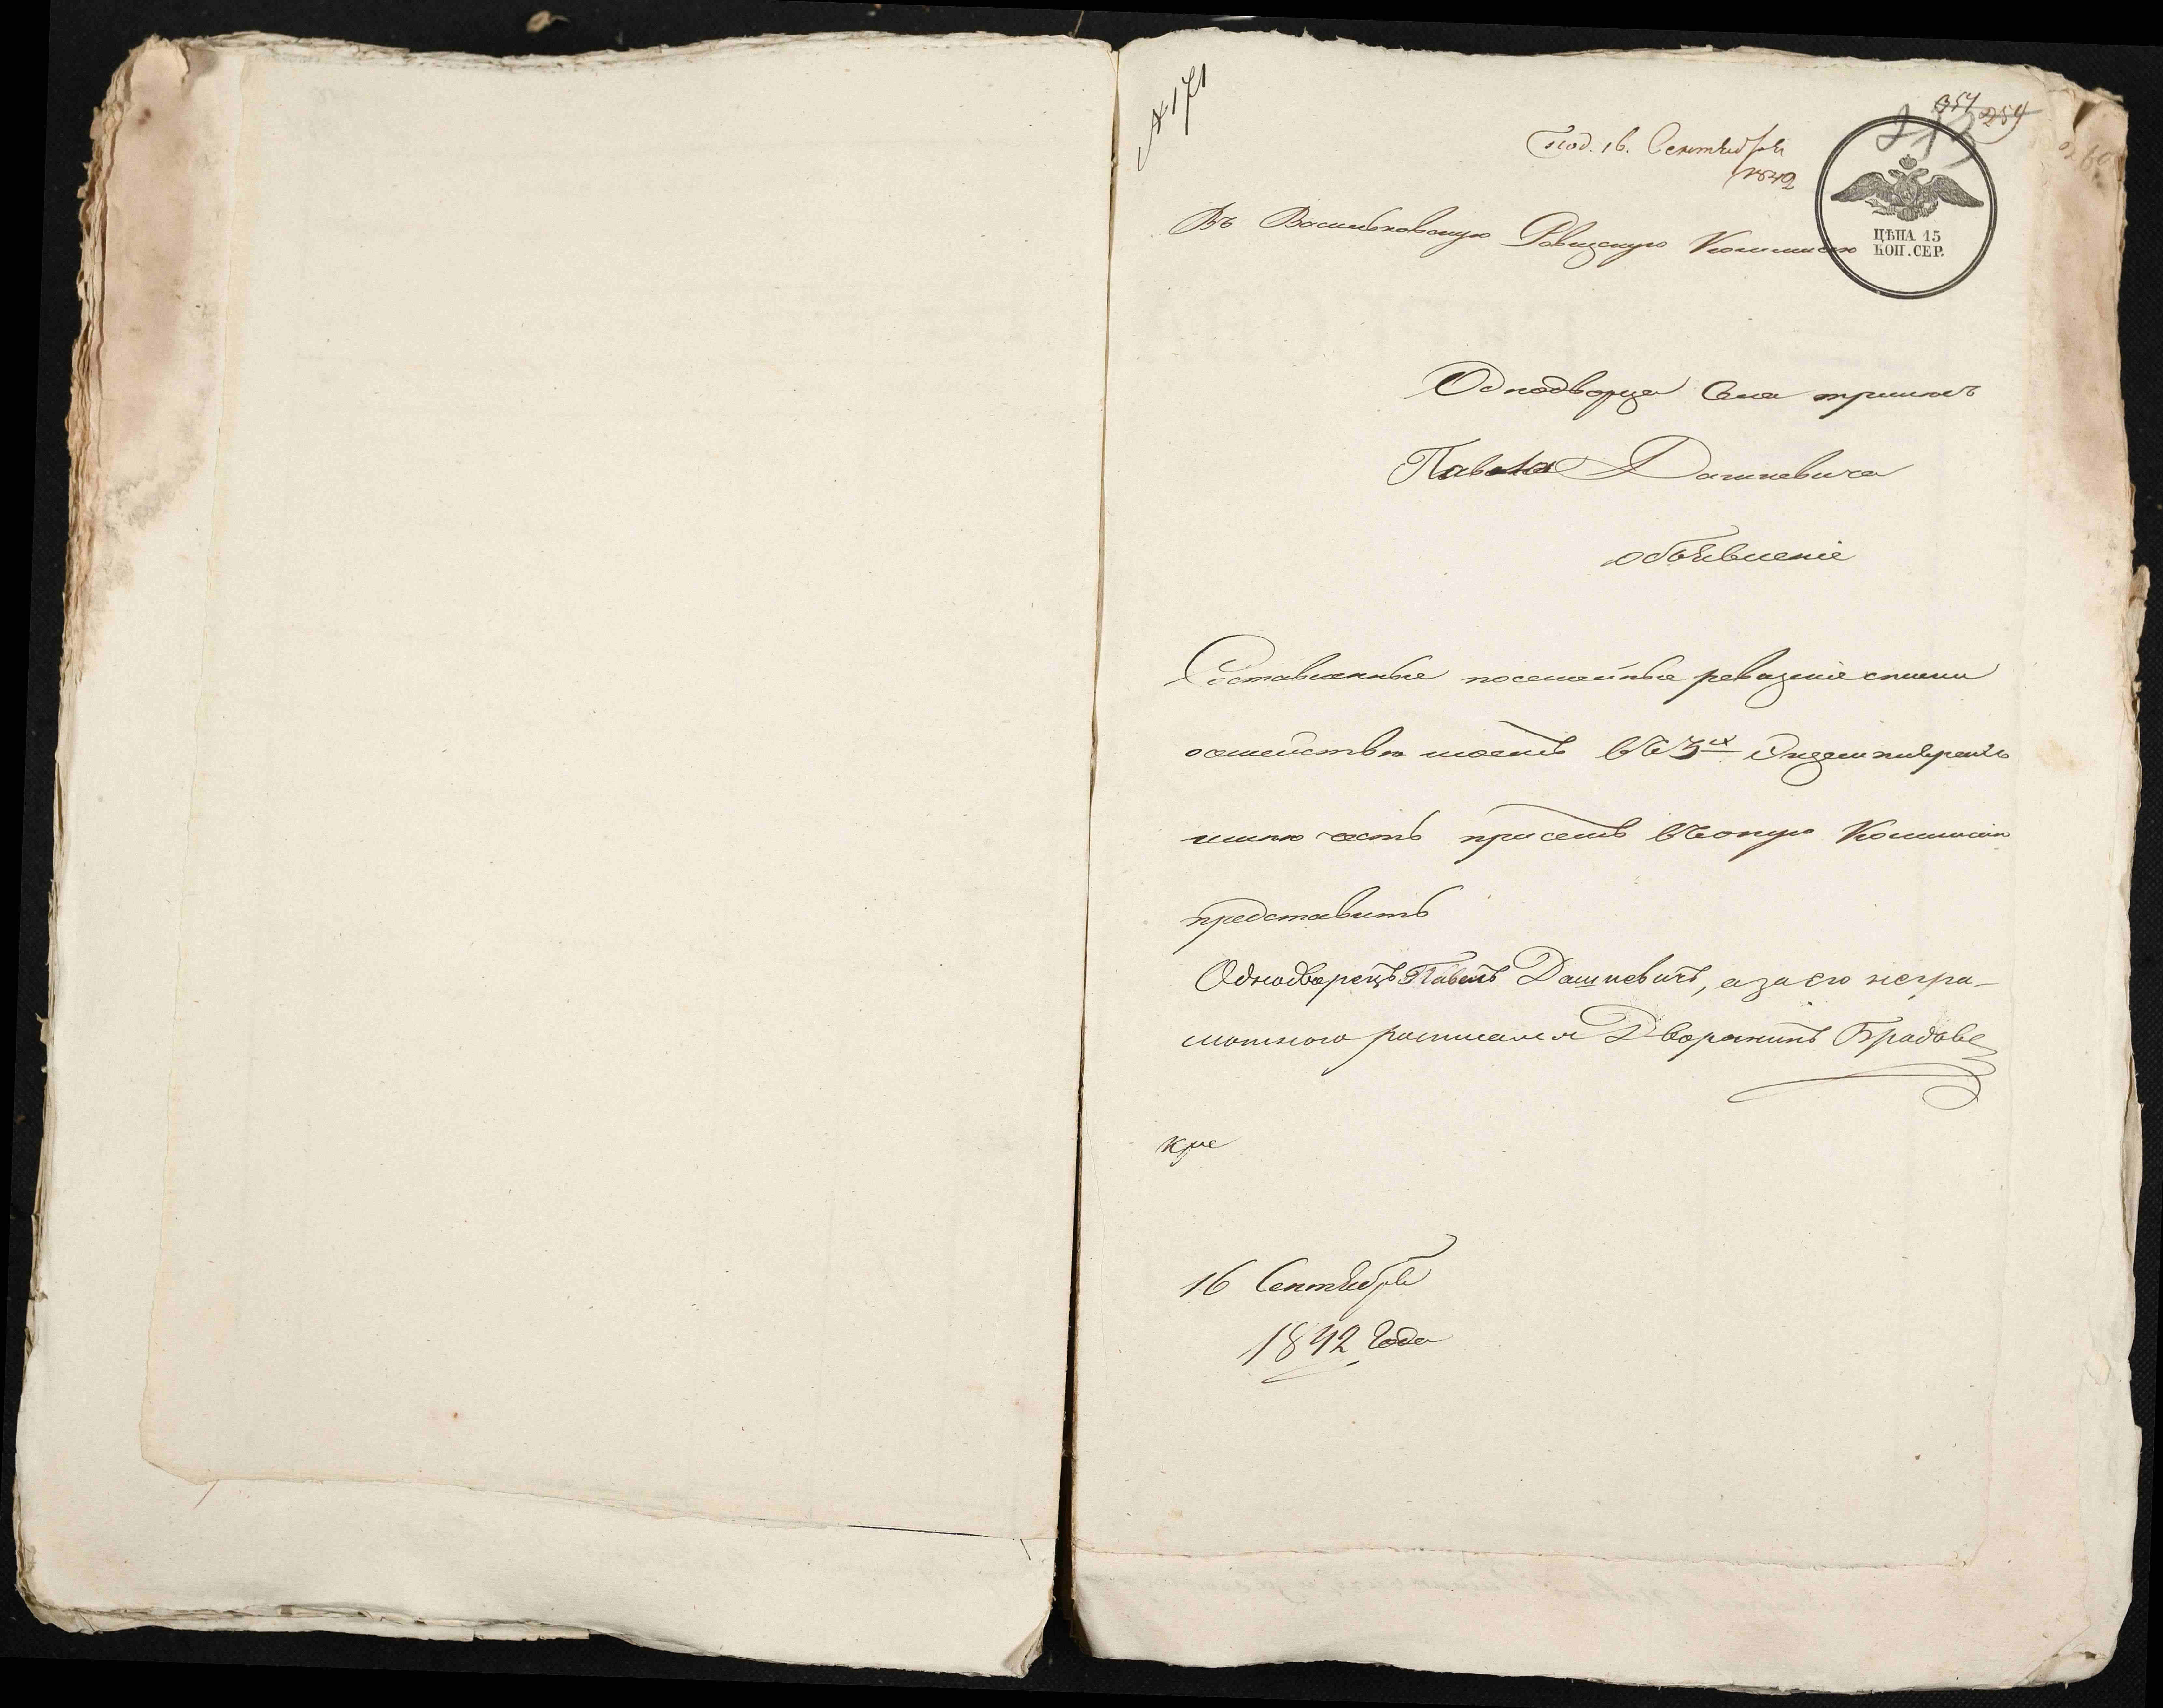 № 171
Под. 16. Сентября
1842
354 254
253
260
ЦѢНА 15
КОП. СЕР.
Въ Васильковскую Ревизскую Коммисію
Однодворца Села
Павла Дашкевича
объявленіе
Составленные посемейные ревизскіе
о семействе моемъ въ 3хъ Экземплярахъ
имею честь при семъ въ оную Коммисію
представить
Однодворецъ Павелъ Дашкевичъ, а за его негра-
мотного росписался Дворянинъ
16 Сентября
1842 года